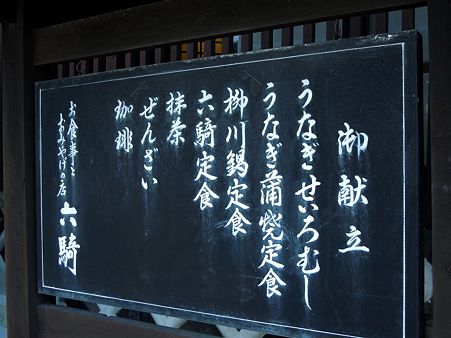 御献立
うなぎせいろむし
うなぎ蒲焼定食
柳川鍋定食
六騎定食
抹茶
ぜんざい
珈琲
お食事と
おみやげの店
六騎